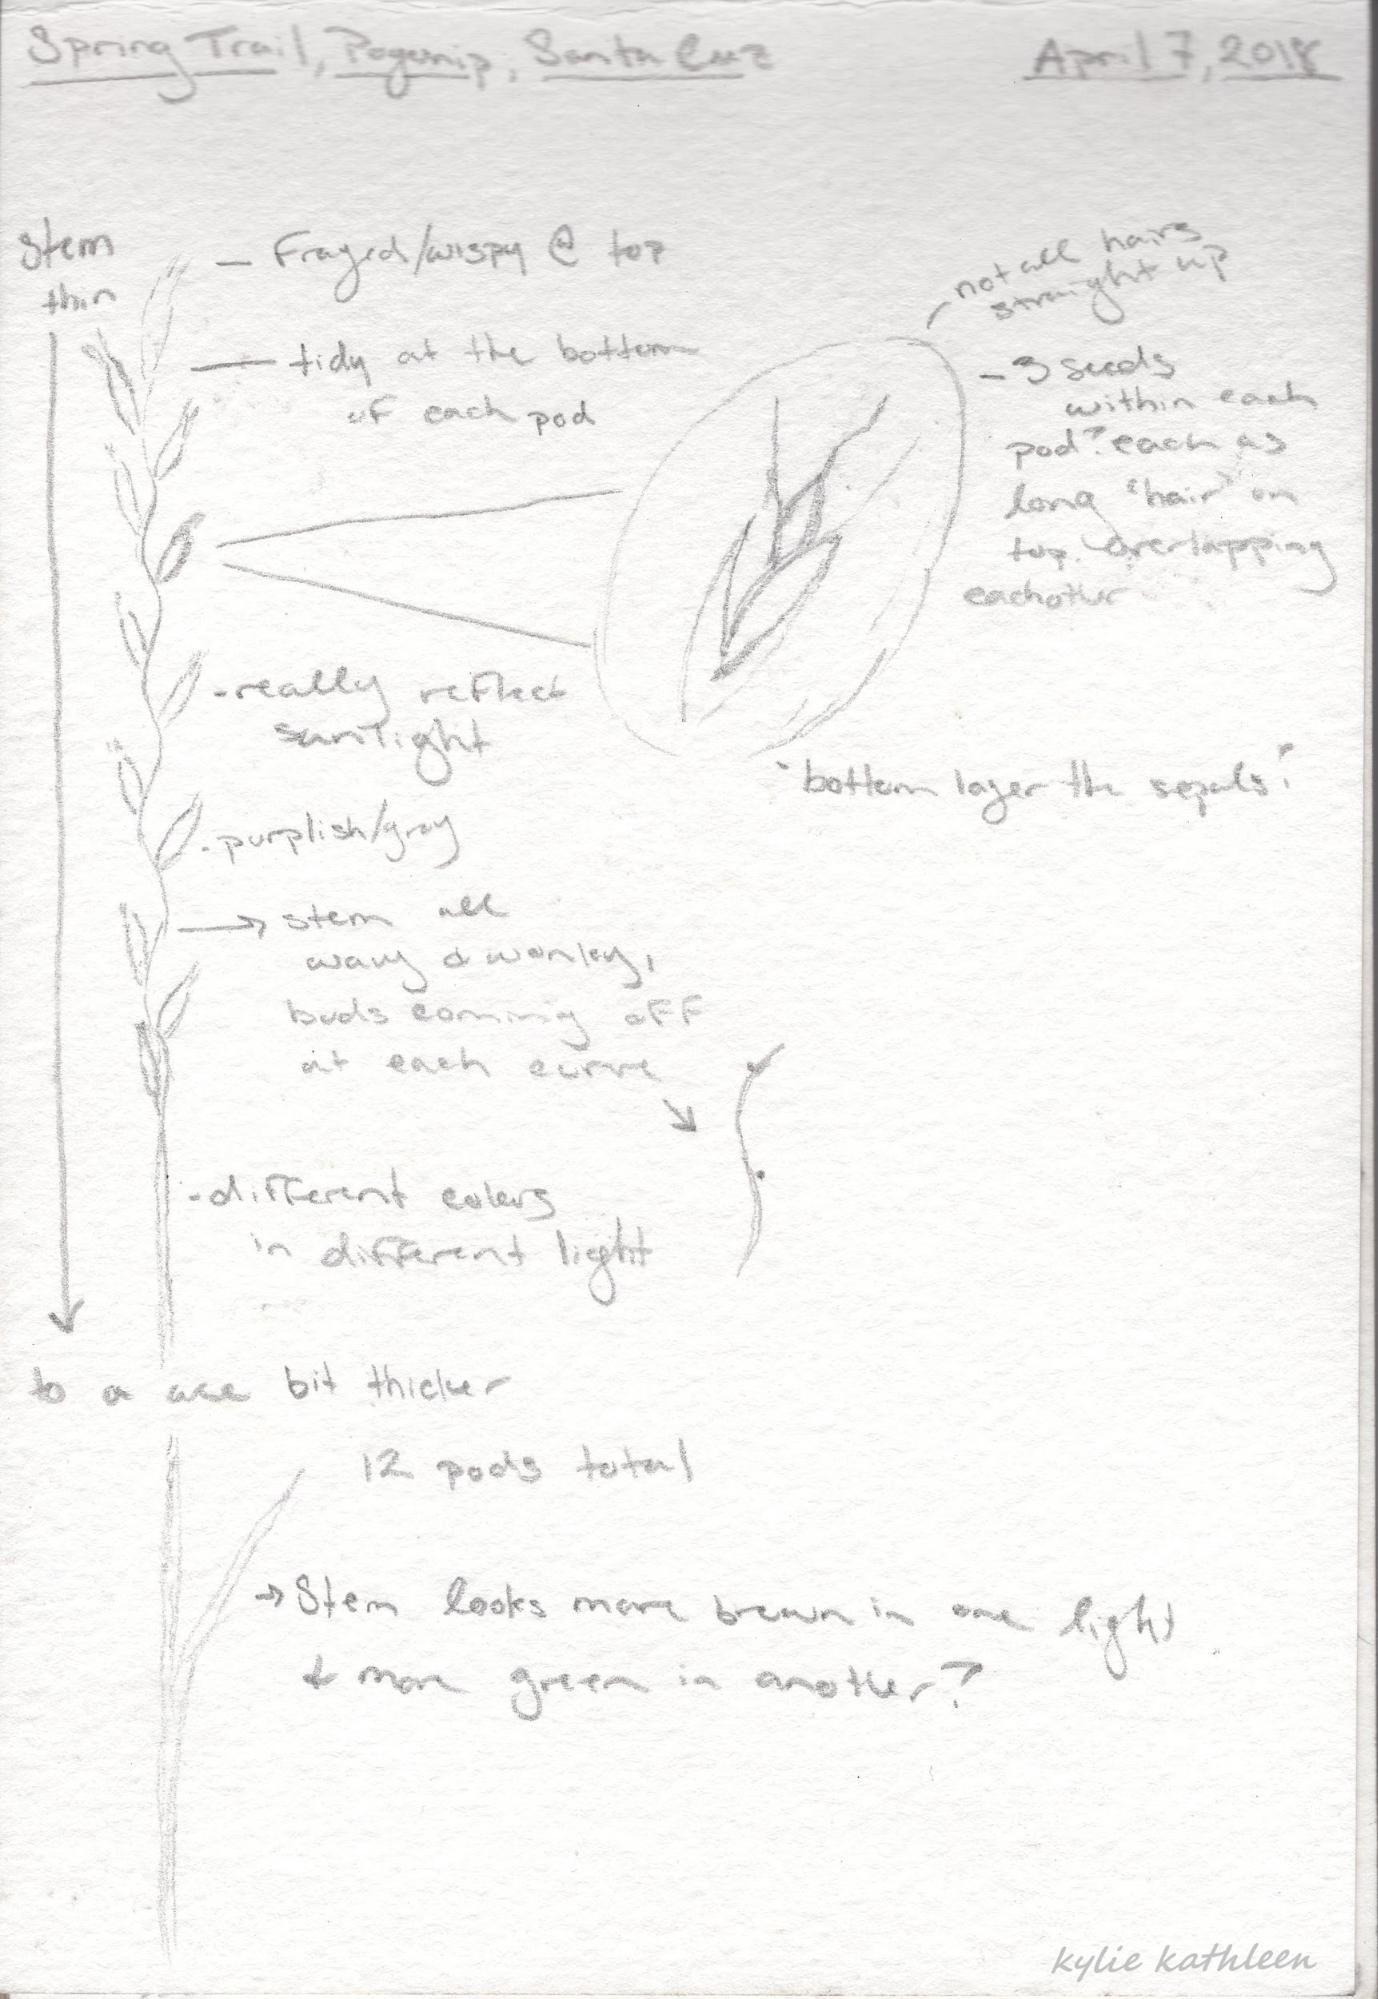 Spring Trail, Pogonip, Santa Cruz
April 7, 2018
Stem
thin
- Frayed/wispy @ top
- tidy at the bottom
of each pod
not all hairs
straight up
- 3 seeds
within each
pod? each as
long "hair" on
top. Overlapping
eachother
- really reflect
sunlight
"bottom layer the sepals?
- purplish/gray
→ stem all
wavy & wonky,
buds coming off
at each curve
- different colors
in different light
to a wee bit thicker
12 pods total
→ Stem looks more brown in one light
& more green in another?
kylie kathleen